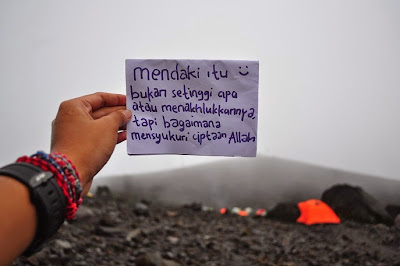 mendaki itu :)
bukan setinggi apa
atau menakhlukkannya
tapi bagaimana
mensyukuri ciptaan Allah